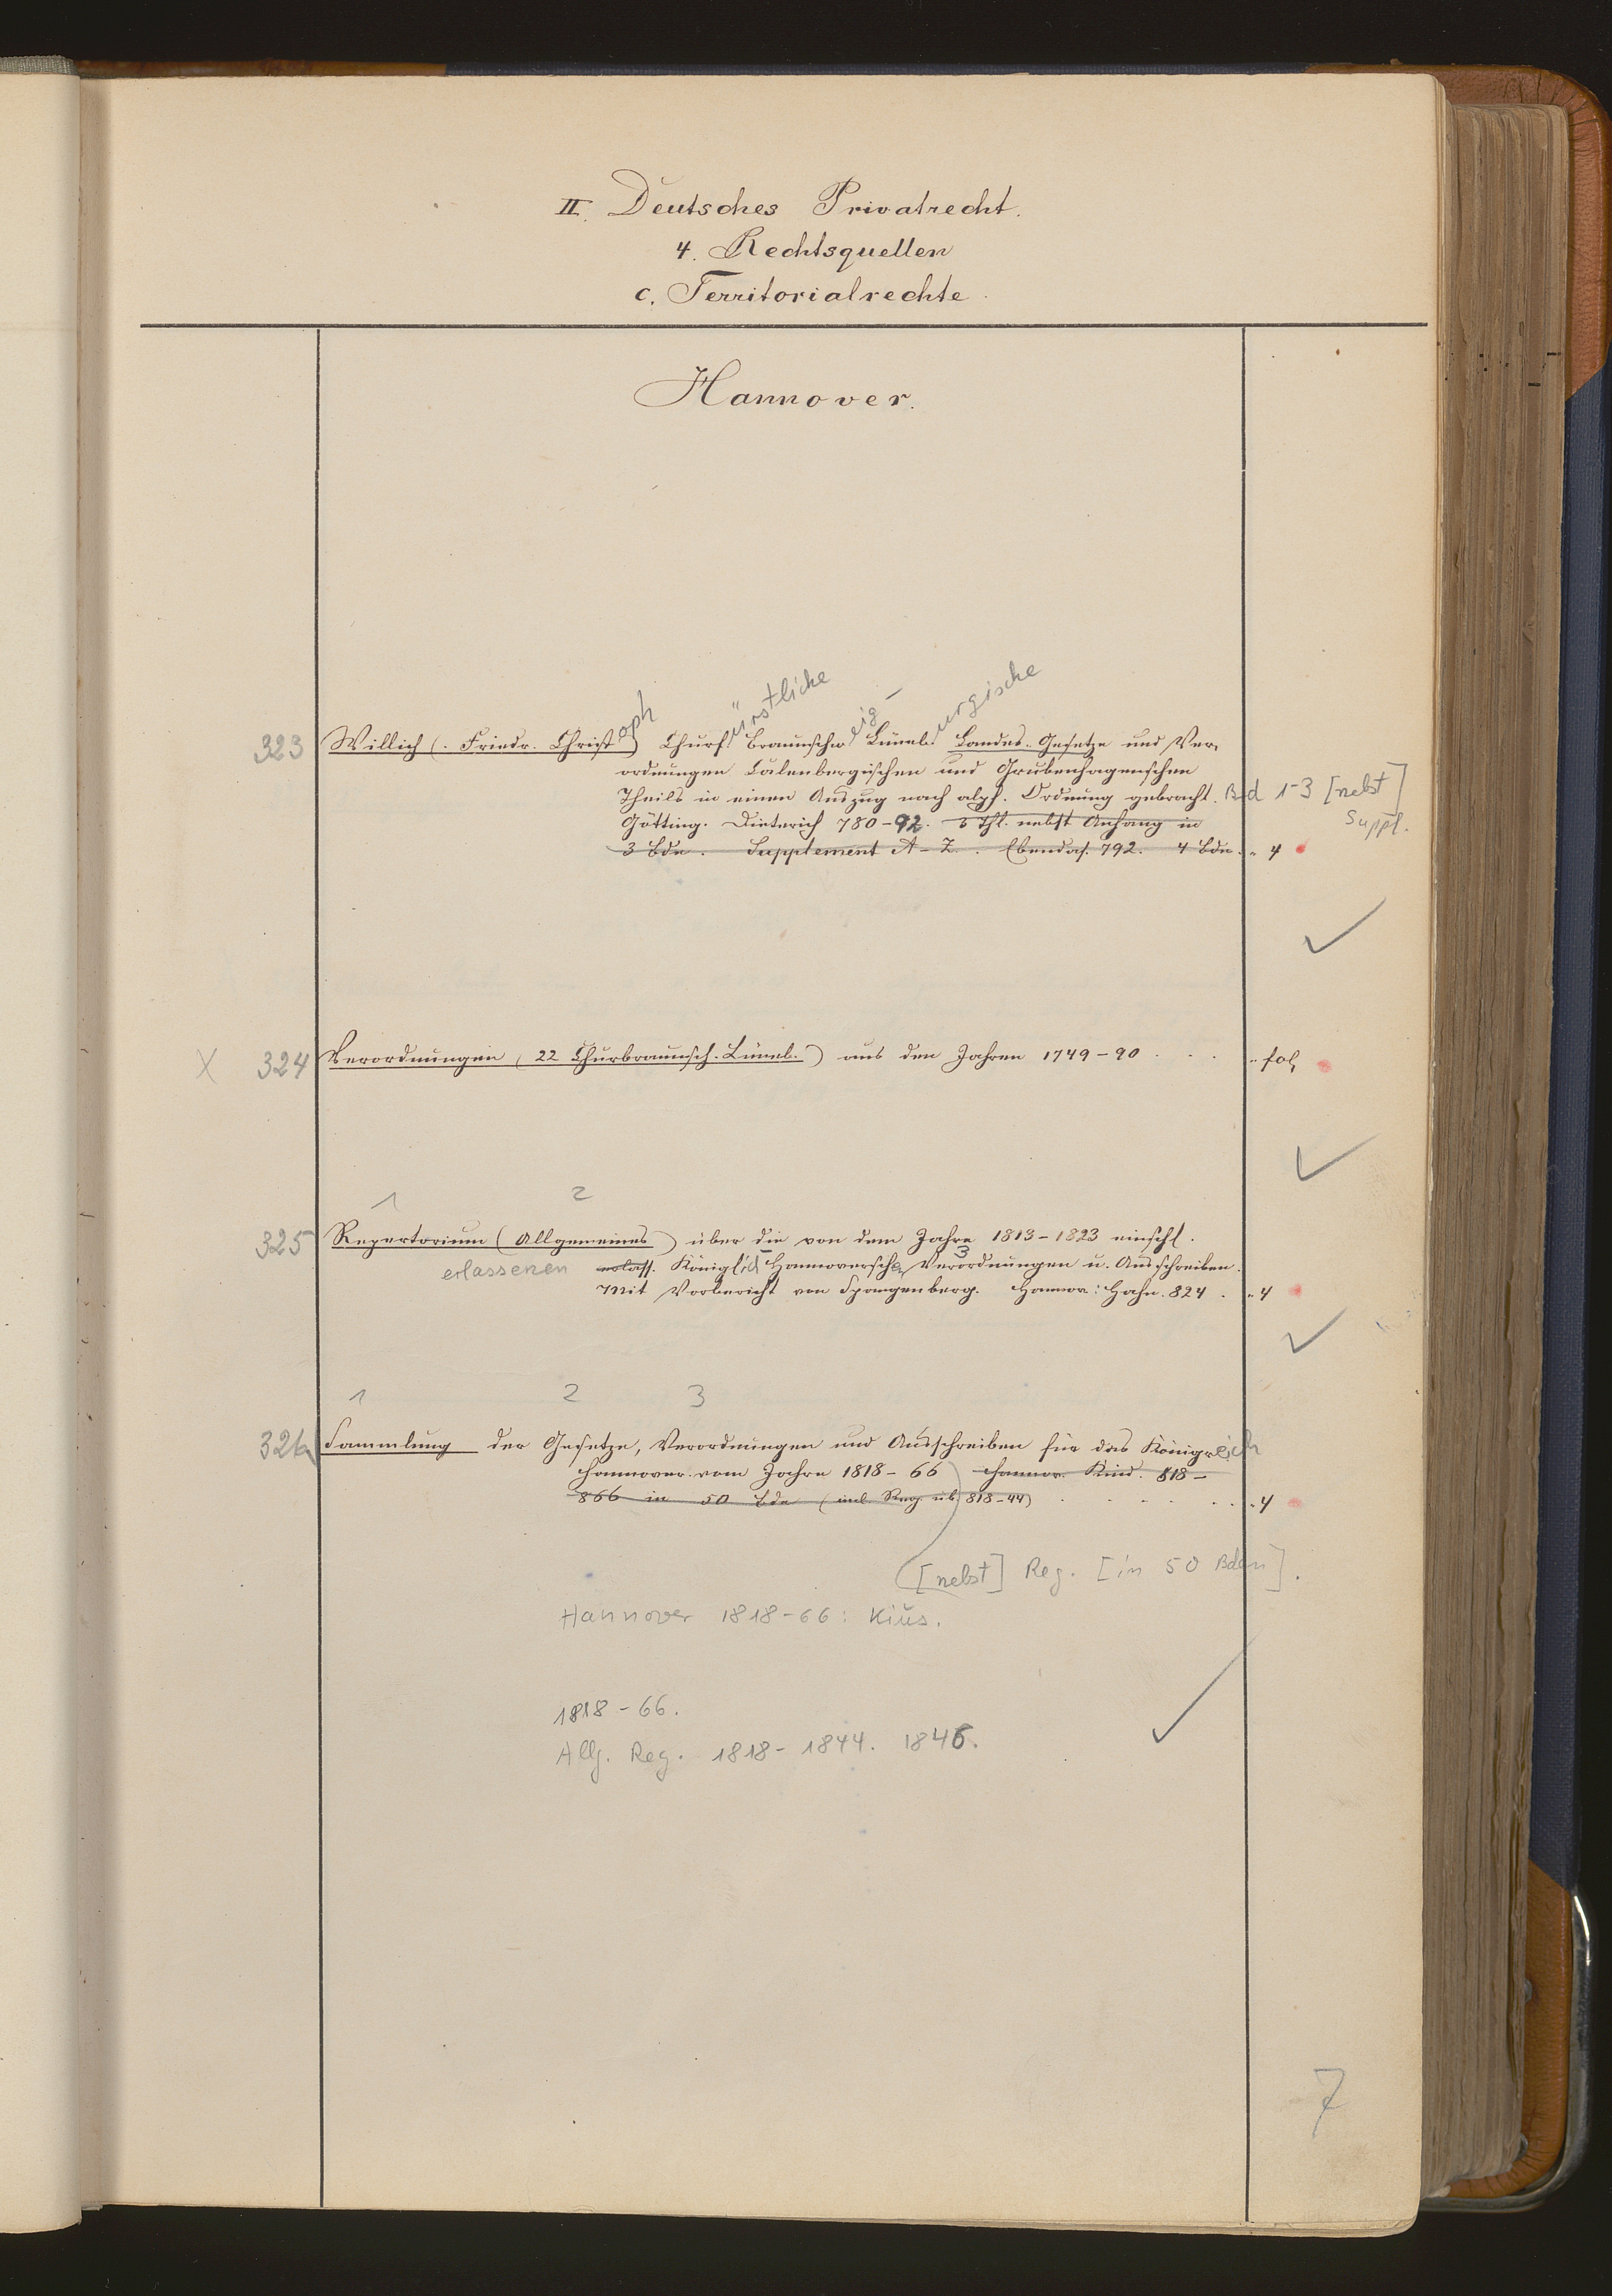 II. Deutsches Privatrecht.
4. Rechtsquellen
c. Territorialrechte.
Hannover.
oph ürstliche ig - urgische
323 Willich (. Friedr. Christ) Churf. Braunschw. Lüneb. Landes-Gesetze und Ver-
ordnungen Calenbergischen und Grubenhagenschen
Theils in einen Auszug nach alph. Ordnung gebracht. Bd 1-3 [nebst]
Suppl.
Götting. Dieterich 780-92. 3 Thl. nebst Anhang in
3 Bdn. Supplement A-Z. Ebendas. 792. 4 Bdn. „ 4
X 324 Verordnungen (22 Churbraunsch. Lüneb.) aus den Jahren 1749-90 . . . „ fol
1 2
325 Repertorium (Allgemeines) über die von dem Jahre 1813-1823 einschl.
3
erlassenen erlass. Königlich Hannoversche Verordnungen u. Ausschreiben.
Mit Vorbericht von Spangenberg. Hannov: Hahn. 824 . „ 4
1 2 3
326 Sammlung der Gesetze, Verordnungen und Ausschreiben für das Königreich
Hannover vom Jahre 1818-66 Hannov. Kius. 818-
866 in 50 Bde (incl. Reg. üb. 818-44) . . . . . „ 4
[nebst] Reg. [in 50 Bden].
Hannover 1818-66: Kius.
1818-66.
Allg. Reg. 1818-1844. 1846.
7